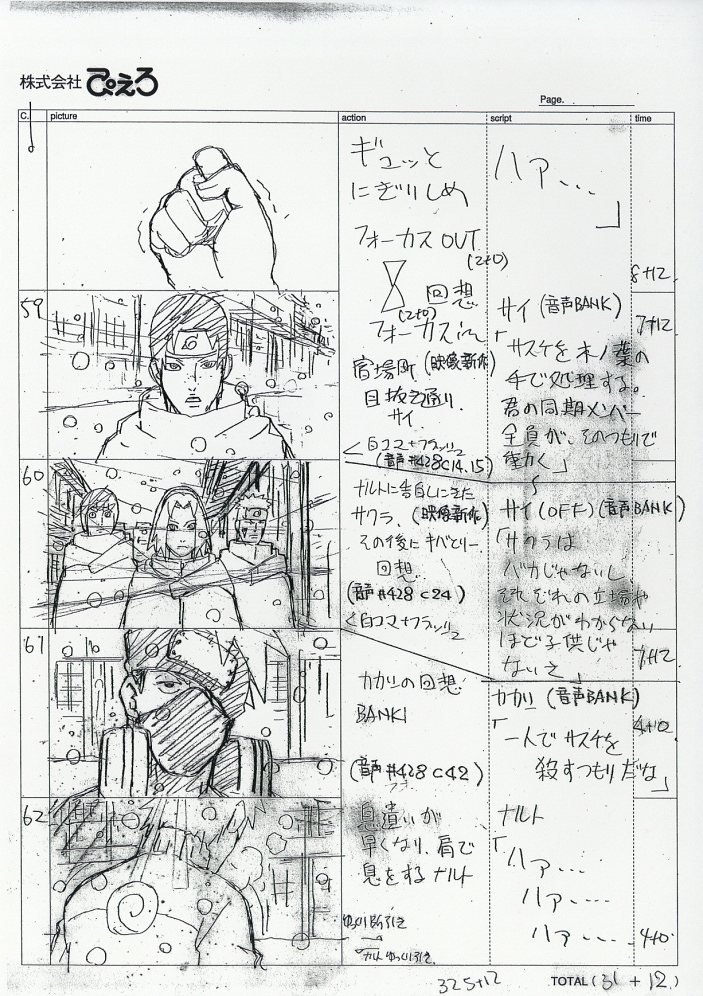 株式会社 ぴえろ
Page.
C. picture action script time
ギュッと
にぎりしめ
フォーカス OUT
(2+0)
回想
(2+0)
フォーカス in
ハァ...
」
8+12
59
宿場町 (映像新作)
目抜き通り.
サイ.
<白コマ+フラッシュ
(音声#428C14.15)
サイ (音声BANK)
「サスケを木ノ葉の
手で処理する。
君の同期メンバー
全員が、そのつもりで
動く」
7+12
60
ナルトに告白しにきた
サクラ、(映像新作)
その後にキバとリー
回想
(音声#428 C24)
<白コマ+フラッシュ
サイ(OFF)(音声BANK)
「サクラは
バカじゃないし
それぞれの立場や
状況がわからない
ほど子供じゃ
ないさ」
7+12
61
カカシの回想
BANK
(音声#428 C42)
カカシ (音声BANK)
「一人でサスケを
殺すつもりだな」
4+0
62
息遣いが
早くなり、肩で
息をするナルト
ゆっくり
ナルトゆっくり引き
ナルト
「ハァ...
ハァ...
ハァ....
4+0
325+12
TOTAL ( 31 + 12. )